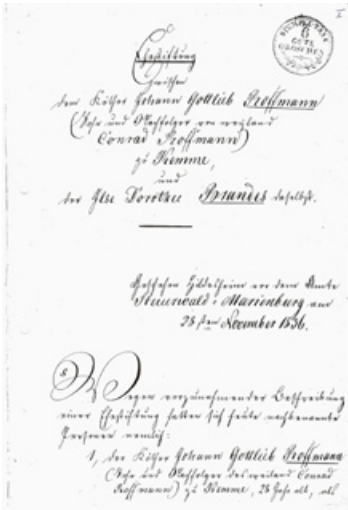 STEMPELTAXE
6
GUTE
GROSCHEN
Ehestiftung
Zwischen
dem Köther Johann Gottlieb Proffmann
(Sohn und Nachfolger von weyland
Conrad Proffmann)
zu Kemme,
und
der Ilse Dorothee Brandes daselbst.
Geschehen Hildesheim vor dem Amte
Steuerwald-Marienburg am
28sten November 1836.
Wegen vorzunehmender Beschreibung
einer Ehestiftung hatten sich heute nachbenannte
Personen nemlich:
1, der Köther Johann Gottlieb Proffmann
(Sohn und Nachfolger des weiland Conrad
Proffmann) zu Kemme, 28 Jahr alt, als